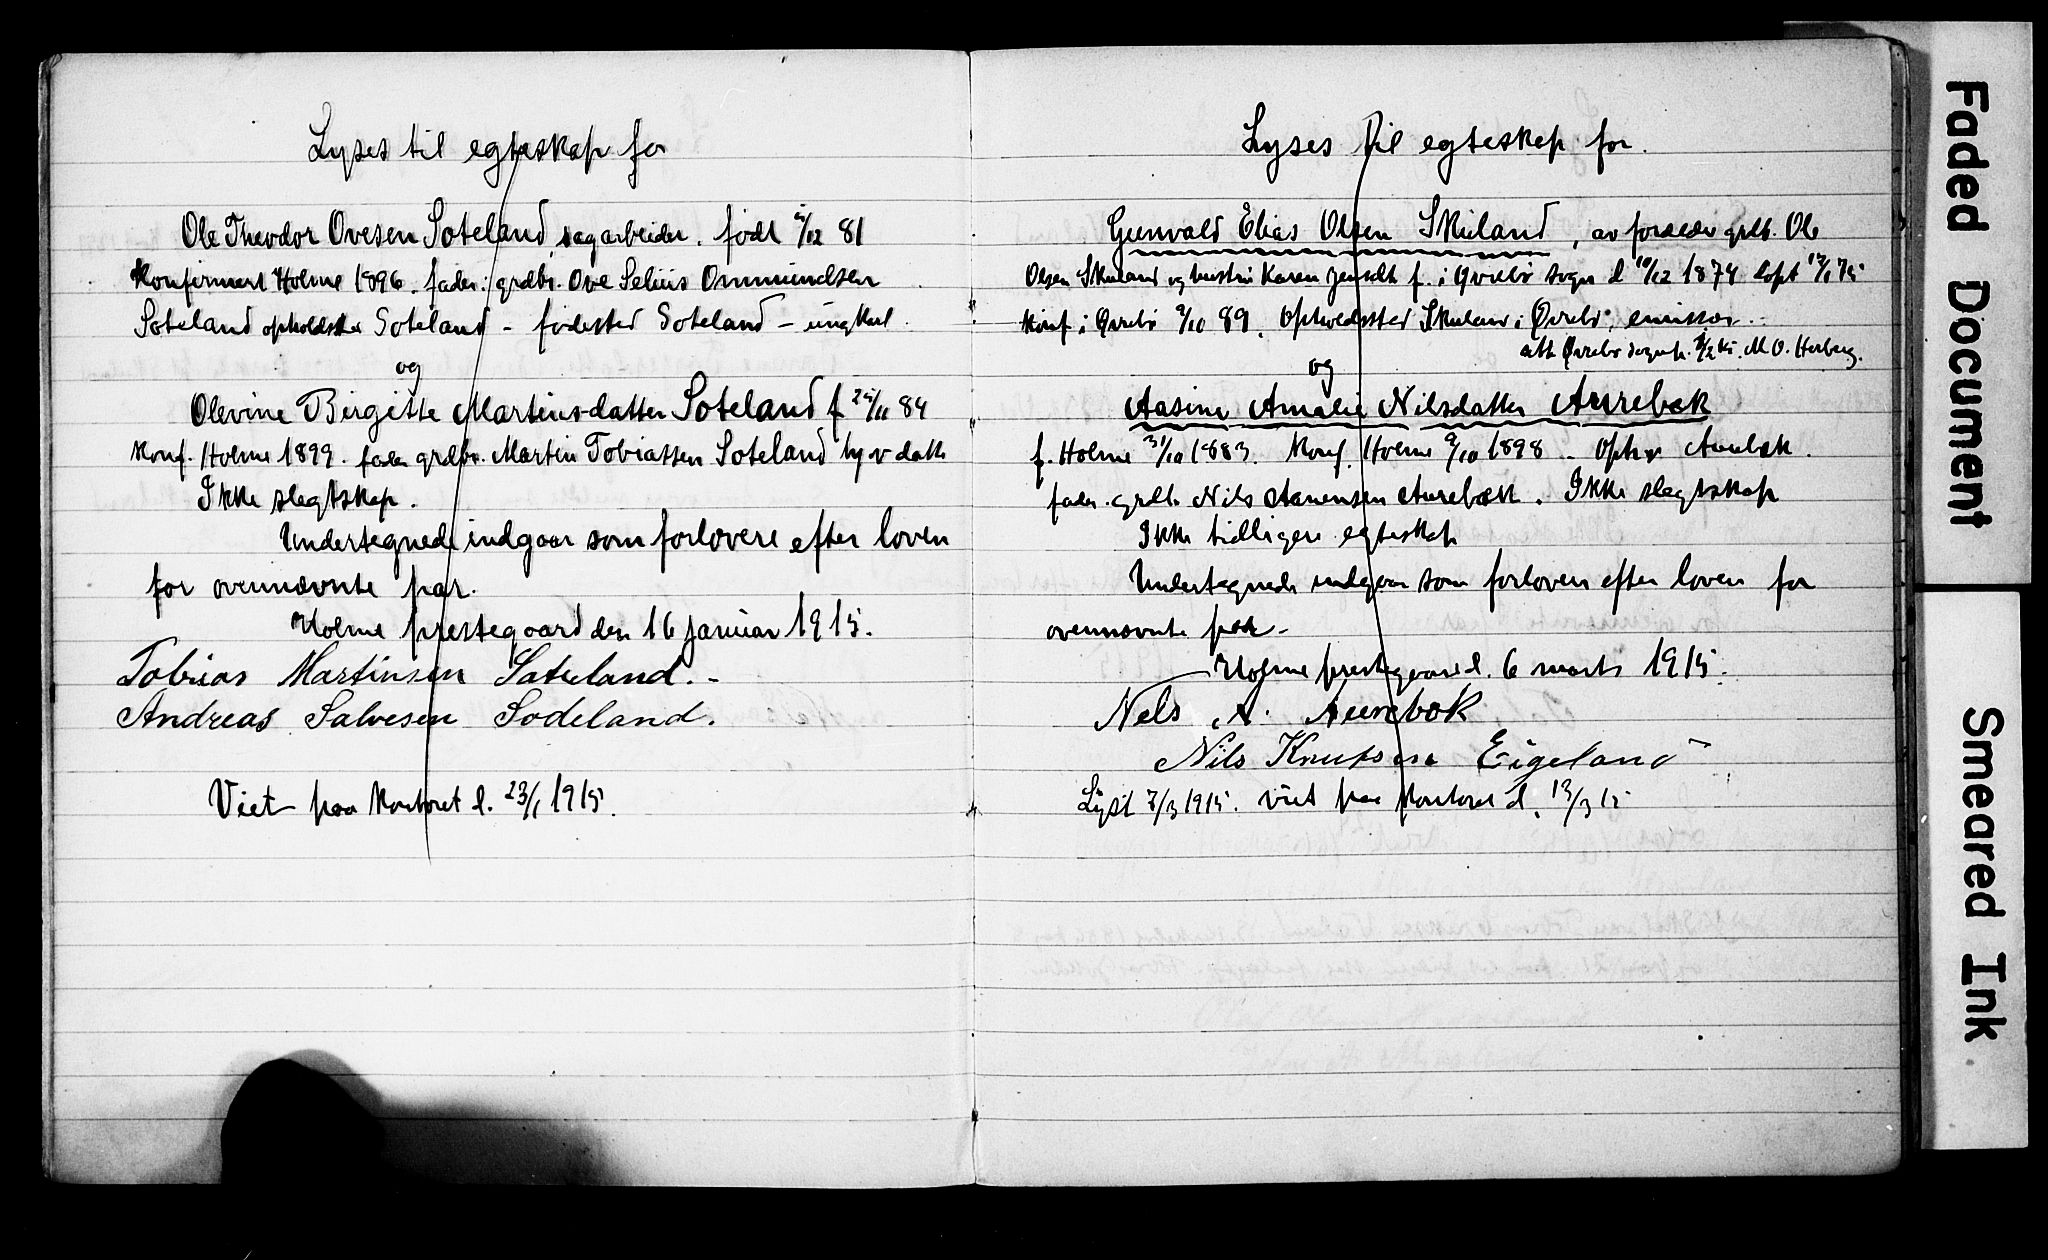 Lyses til egteskap for
Ole Theodor Ovesen Soteland, sagarbeider. født /12 81
Konfirmert Holme 1896. fader: grdbr. Ove Selius Ommundsen
Soteland opholdssted Soteland - fødested Soteland - ungkarl.
og
Olevine Birgitte Martinsdatter Soteland f 25/11 84
Konf. Holme 1899. fader grdbr. Martin Tobiassen Soteland
Ikke slegtskap.
Undertegnede indgaar som forlovere efter loven
for ovennævnte par.
Holme prestegaard den 16 januar 1915.
Tobias Martinsen Sateland. -
Andreas Salvesen Sodeland.
Viet paa kontoret d. 23/1 1915.
Lyses til egteskap for.
Gunvald Elias Olsen Skuland, av forældr grdb. Ole
Olsen Skuland og hustru Karen f. i Øvrebø sogn d 10/12 1874 døpt 17/1 75
Konf. i Øvrebø /10 89. Opholdssted Skuland i Øvrebø, emissær.
att. Øvrebø sogne M O. Herberg.
og
Aasine Amalie Nilsdatter Aurebæk
f. Holme 31/10 1883. Konf. Holme 9/10 1898 - Aurebæk.
fader. grdb. Nils Aanensen Aurebæk. Ikke slegtskap
Ikke tidligere egteskap
Undertegnede indgaar som forlovere efter loven for
ovennævnte par -
Holme prestegaard d. 6 marts 1915.
Nels A. Aurebæk
Nils Knutsen Eigeland
Lyst 7/3 1915. viet paa kontoret d. 13/3 15
Faded Document
Smeared Ink